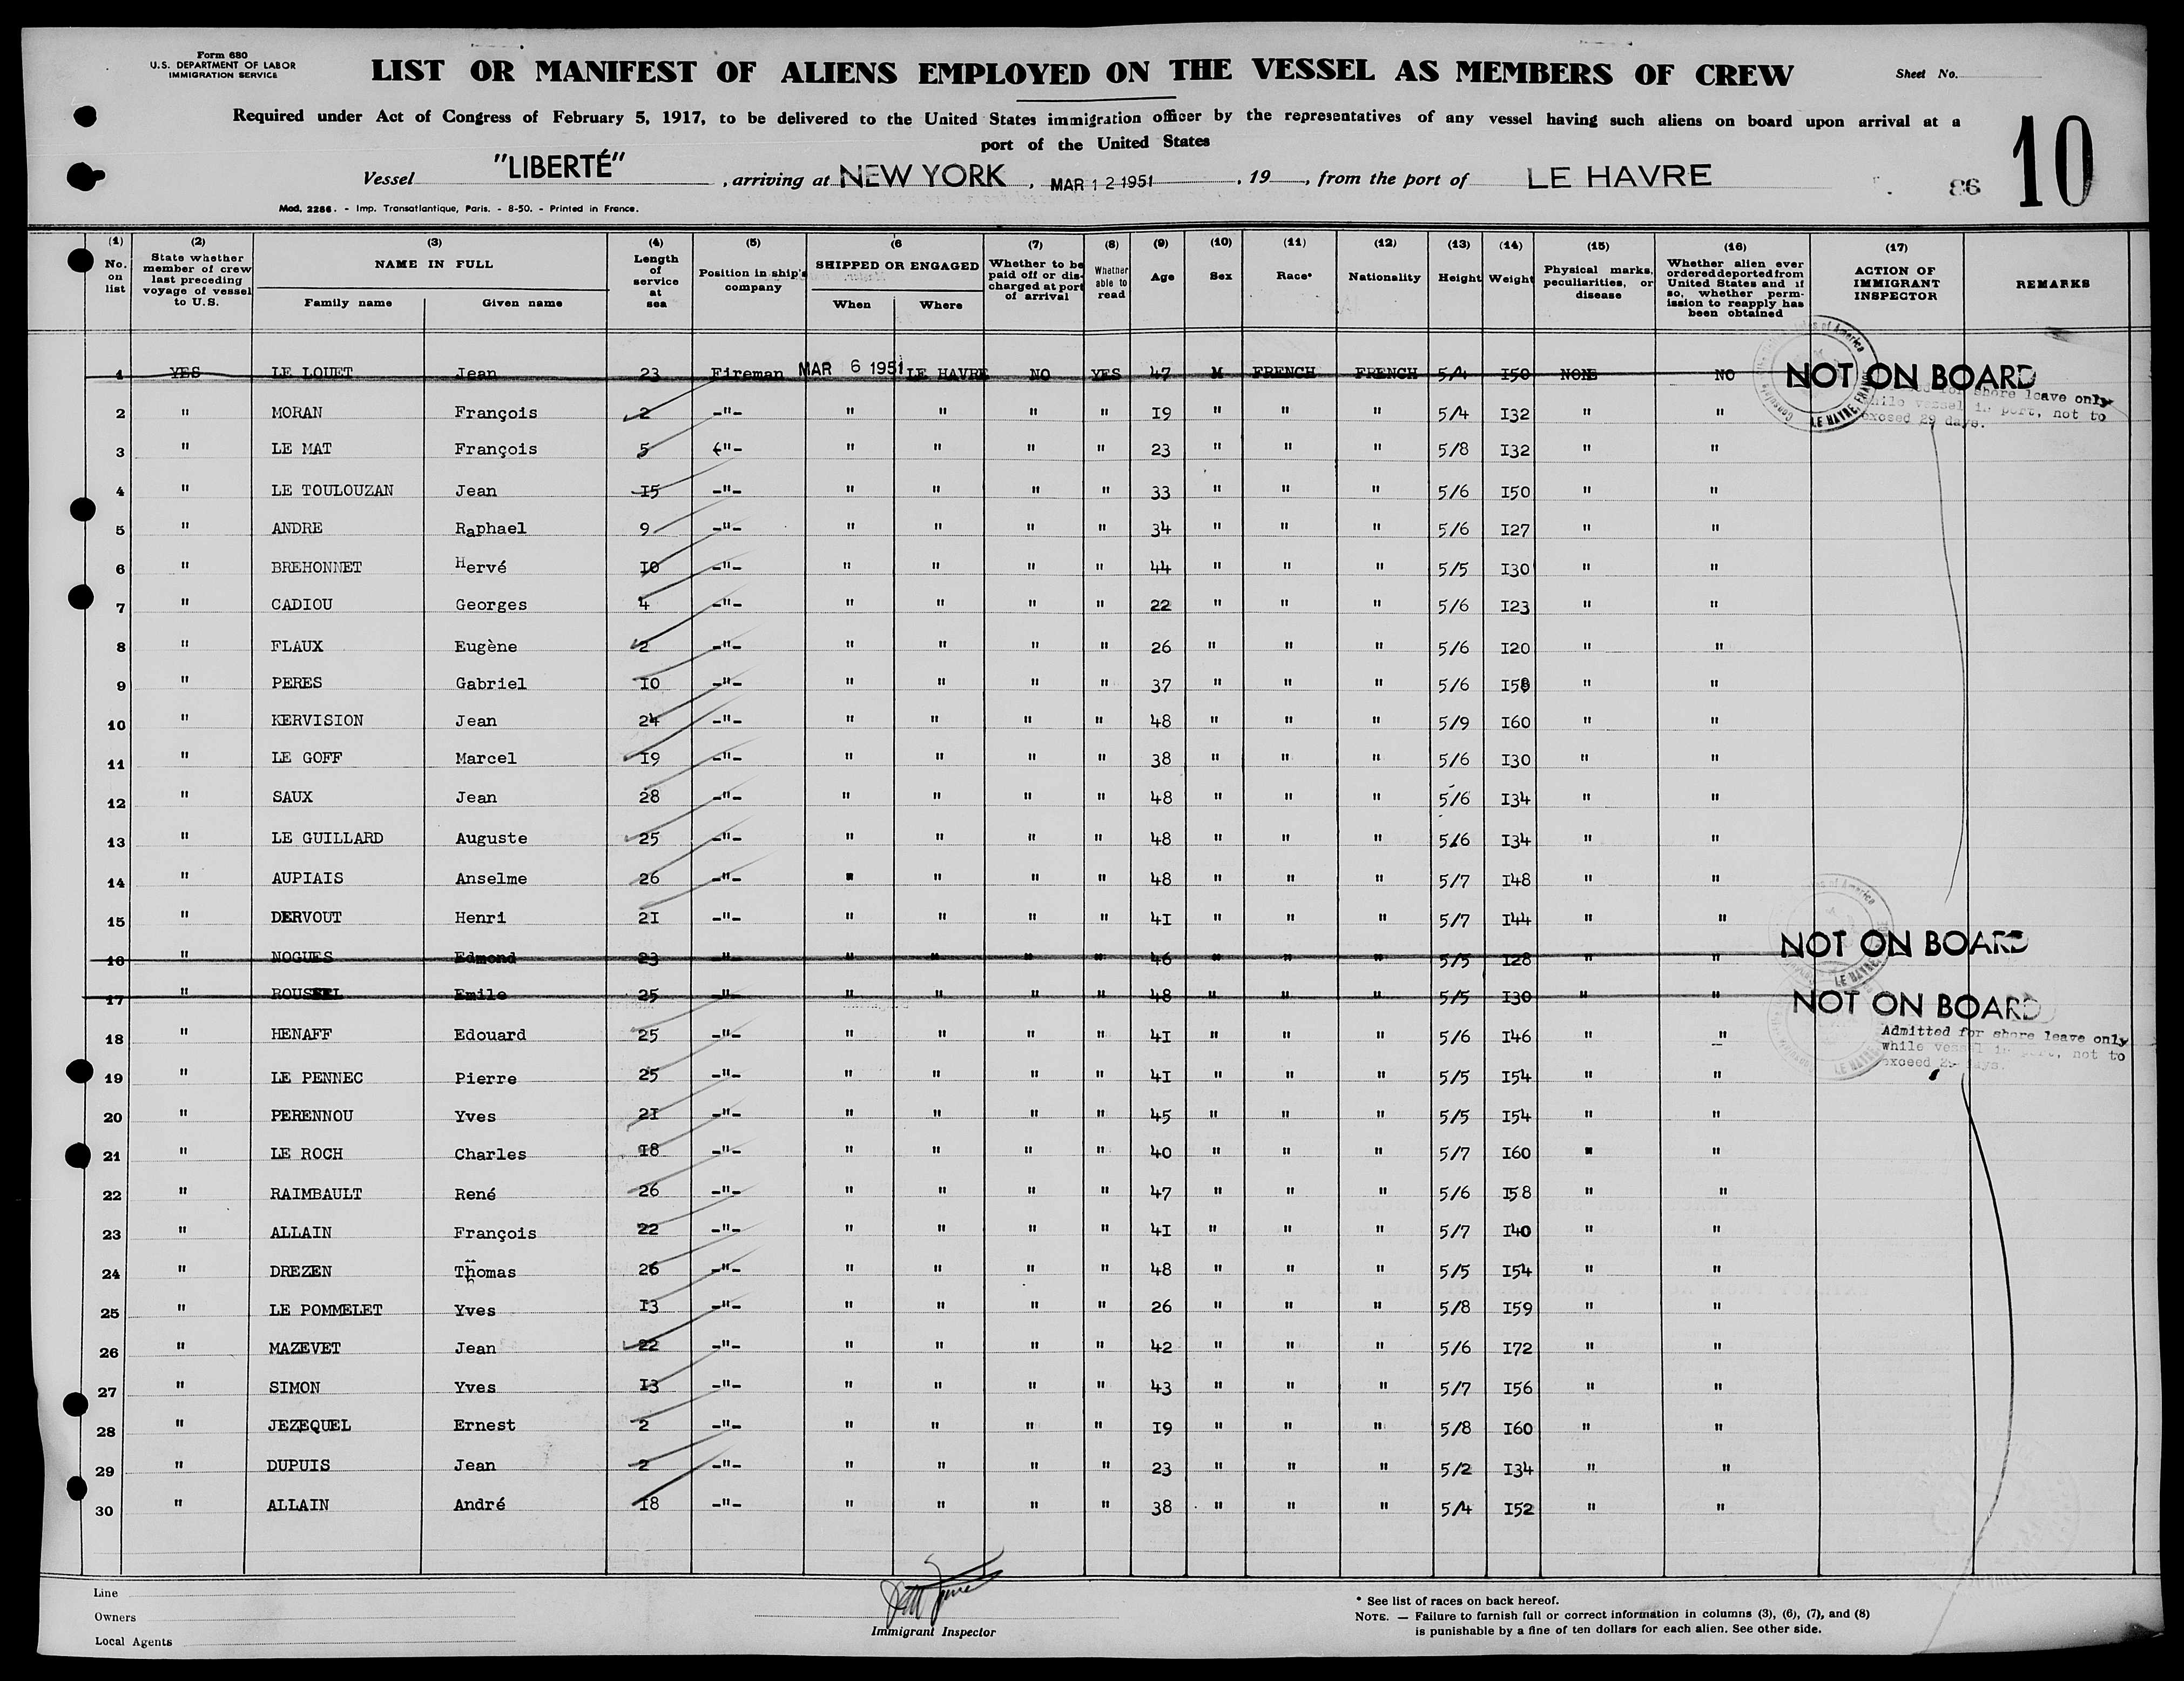 Form 680
U.S. DEPARTMENT OF LABOR
IMMIGRATION SERVICE
LIST OR MANIFEST OF ALIENS EMPLOYED ON THE VESSEL AS MEMBERS OF CREW
Sheet No.
Required under Act of Congress of February 5, 1917, to be delivered to the United States immigration officer by the representatives of any vessel having such aliens on board upon arrival at a
port of the United States
10
Vessel "LIBERTÉ", arriving at NEW YORK, MAR 12 1951, 19, from the port of LE HAVRE
86
Mod. 2286. - Imp. Transatlantique, Paris. - 8-50. - Printed in France.
(1) (2) (3) (4) (5) (6 (7) (8) (9) (10) (11) (12) (13) (14) (15) (16) (17)
No. on list
State whether member of crew last preceding voyage of vessel to U.S.
NAME IN FULL
Family name Given name
Length of service at sea
Position in ship's company
SHIPPED OR ENGAGED
When Where
Whether to be paid off or discharged at port of arrival
Whether able to read
Age Sex Race* Nationality Height Weight
Physical marks, peculiarities, or disease
Whether alien ever ordered deported from United States and if so, whether permission to reapply has been obtained
ACTION OF IMMIGRANT INSPECTOR
REMARKS
1 YES LE LOUET Jean 23 Fireman MAR 6 1951 LE HAVRE NO YES 47 M FRENCH FRENCH 5/4 I50 NONE NO NOT ON BOARD
2 " MORAN François 2 -"- " " " " I9 " " " 5/4 I32 " "
for shore leave only
while vessel in port, not to
exceed 29 days.
3 " LE MAT François 5 "- " " " " 23 " " " 5/8 I32 " "
4 " LE TOULOUZAN Jean I5 -"- " " " " 33 " " " 5/6 I50 " "
5 " ANDRE Raphael 9 -"- " " " " 34 " " " 5/6 I27 " "
6 " BREHONNET Hervé I0 -"- " " " " 44 " " " 5/5 I30 " "
7 " CADIOU Georges 4 -"- " " " " 22 " " " 5/6 I23 " "
8 " FLAUX Eugène 2 -"- " " " " 26 " " " 5/6 I20 " "
9 " PERES Gabriel I0 -"- " " " " 37 " " " 5/6 I58 " "
10 " KERVISION Jean 24 -"- " " " " 48 " " " 5/9 I60 " "
11 " LE GOFF Marcel I9 -"- " " " " 38 " " " 5/6 I30 " "
12 " SAUX Jean 28 -"- " " " " 48 " " " 5/6 I34 " "
13 " LE GUILLARD Auguste 25 -"- " " " " 48 " " " 5/6 I34 " "
14 " AUPIAIS Anselme 26 -"- " " " " 48 " " " 5/7 I48 " "
15 " DERVOUT Henri 2I -"- " " " " 4I " " " 5/7 I44 " "
16 " NOGUES Edmond 23 -"- " " " " 46 " " " 5/5 I28 " " NOT ON BOARD
17 " ROUSSEL Emile 25 -"- " " " " 48 " " " 5/5 I30 " " NOT ON BOARD
18 " HENAFF Edouard 25 -"- " " " " 4I " " " 5/6 I46 " "
Admitted for shore leave only
while vessel in port, not to
exceed 29 days.
19 " LE PENNEC Pierre 25 -"- " " " " 4I " " " 5/5 I54 " "
20 " PERENNOU Yves 2I -"- " " " " 45 " " " 5/5 I54 " "
21 " LE ROCH Charles I8 -"- " " " " 40 " " " 5/7 I60 " "
22 " RAIMBAULT René 26 -"- " " " " 47 " " " 5/6 I58 " "
23 " ALLAIN François 22 -"- " " " " 4I " " " 5/7 I40 " "
24 " DREZEN Thomas 26 -"- " " " " 48 " " " 5/5 I54 " "
25 " LE POMMELET Yves I3 -"- " " " " 26 " " " 5/8 I59 " "
26 " MAZEVET Jean 22 -"- " " " " 42 " " " 5/6 I72 " "
27 " SIMON Yves I3 -"- " " " " 43 " " " 5/7 I56 " "
28 " JEZEQUEL Ernest 2 -"- " " " " I9 " " " 5/8 I60 " "
29 " DUPUIS Jean 2 -"- " " " " 23 " " " 5/2 I34 " "
30 " ALLAIN André I8 -"- " " " " 38 " " " 5/4 I52 " "
Line
Owners
Local Agents
Immigrant Inspector
* See list of races on back hereof.
NOTE. — Failure to furnish full or correct information in columns (3), (6), (7), and (8)
is punishable by a fine of ten dollars for each alien. See other side.